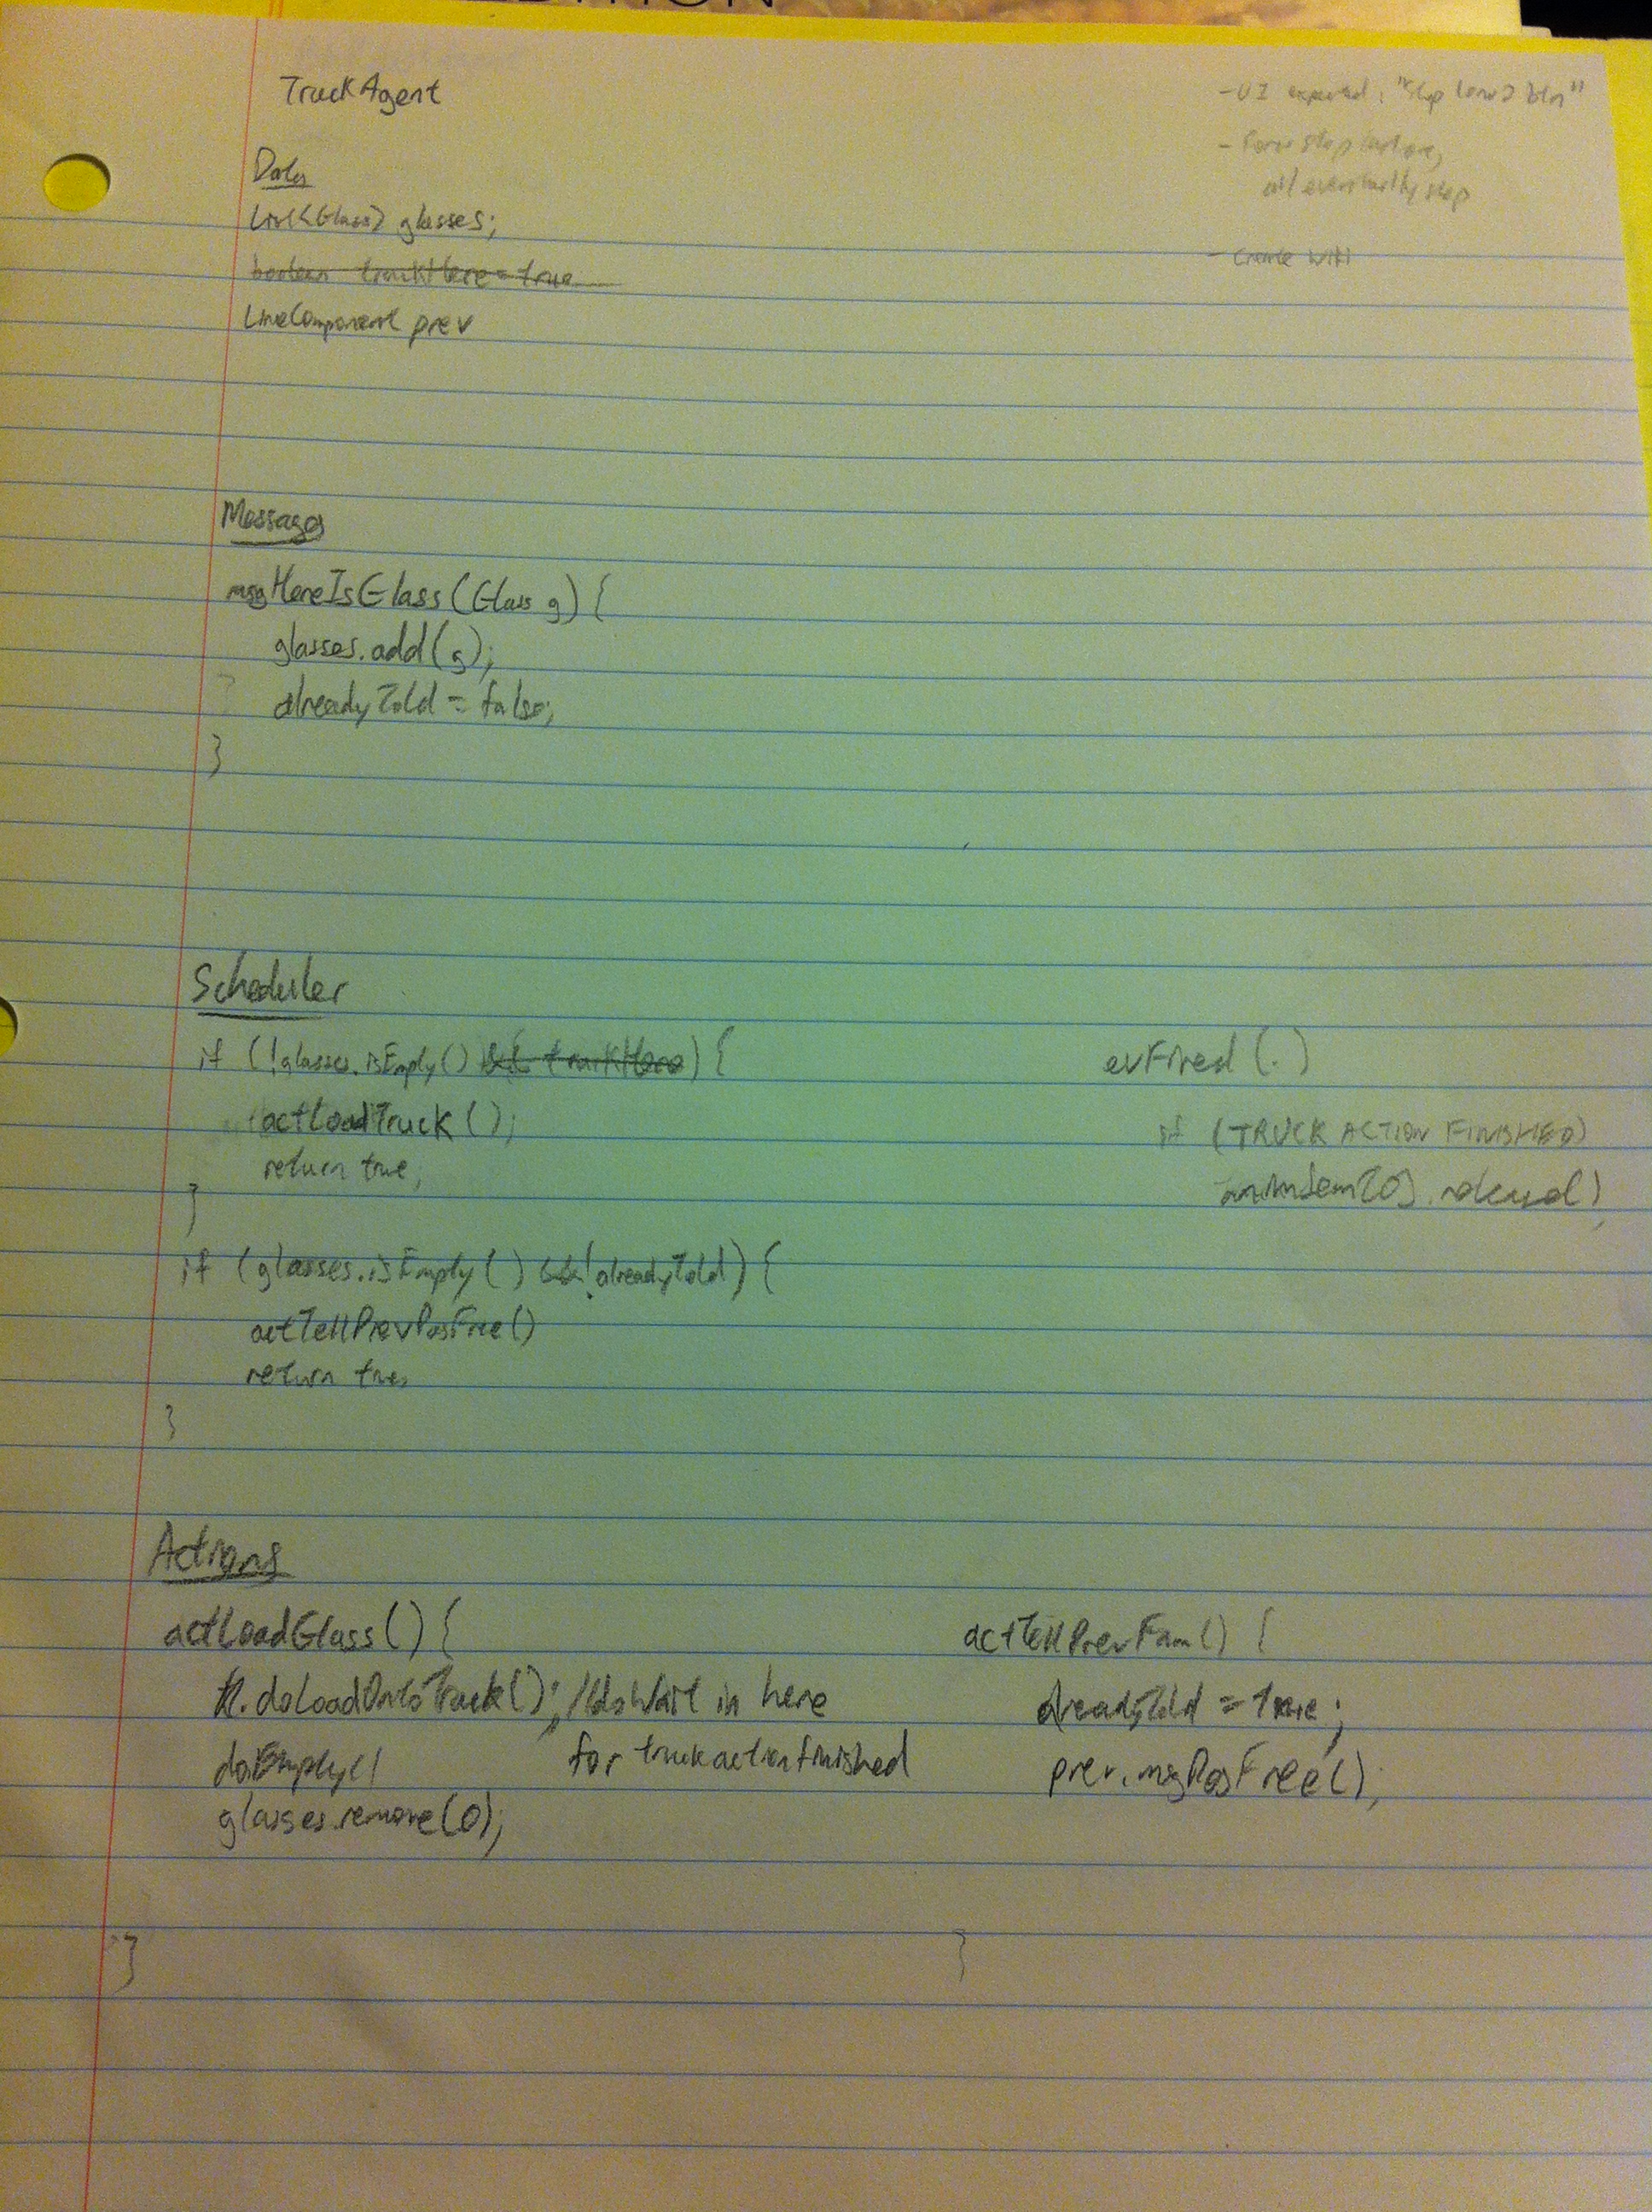 EDITION
TruckAgent
Data
List<Glass> glasses;
boolean truckHere = true
LineComponent prev
- UI expected: "stop conv 2 btn"
- Force stop
all eventually stop
- Create Wiki
Messages
msgHereIsGlass(Glass g) {
glasses.add(g);
alreadyTold = false;
}
Scheduler
if (!glasses.isEmpty() && truckHere) {
actLoadTruck();
return true;
}
if (glasses.isEmpty() && !alreadyTold) {
actTellPrevPosFree()
return true;
}
evFired(.)
if (TRUCK ACTION FINISHED)
animSem[0].release()
Actions
actLoadGlass() {
doLoadOntoTruck(); // doWait in here
for truck action finished
doEmpty()
glasses.remove(0);
}
actTellPrevFam() {
alreadyTold = true;
prev.msgPosFree();
}